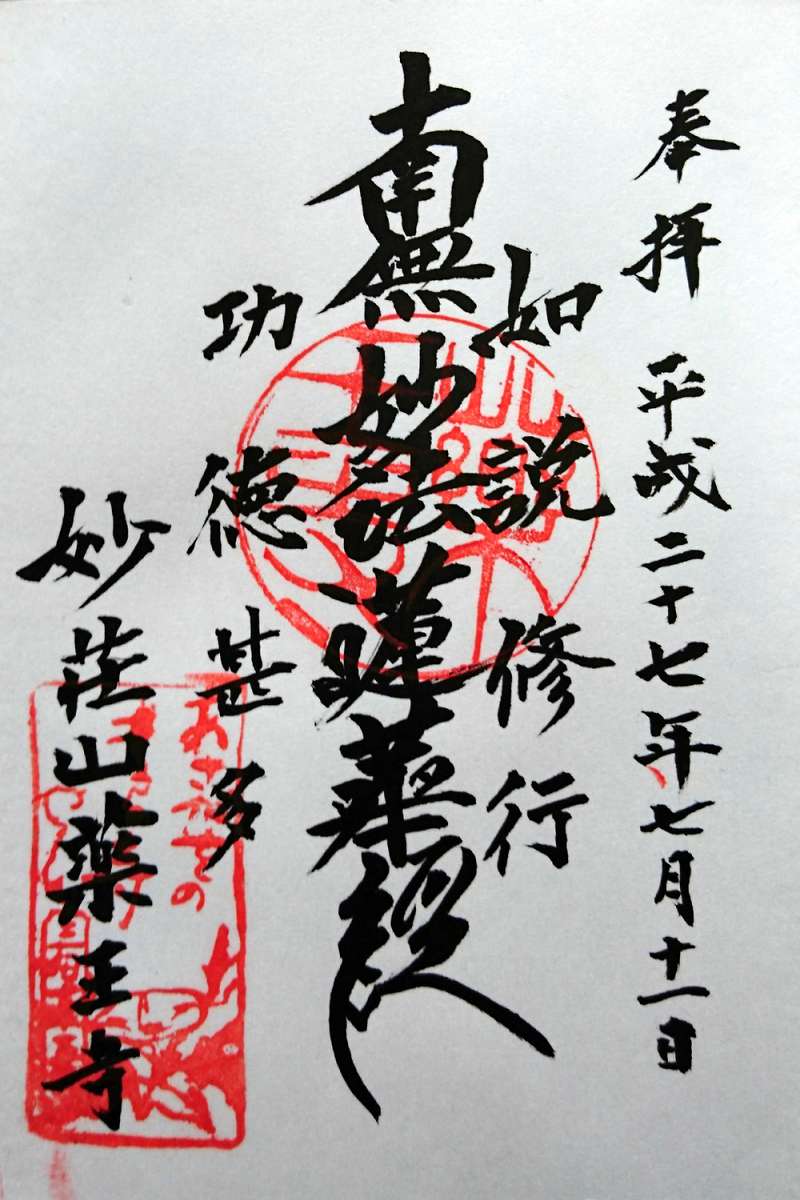 奉拝 平成二十七年七月十一日
如説修行
南無妙法蓮華経
功徳甚多
妙荘山薬王寺